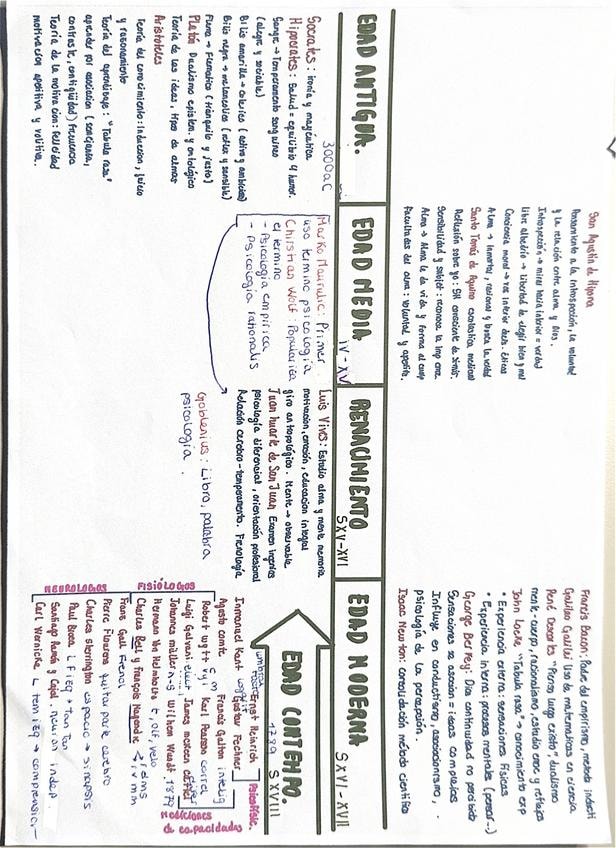 EDAD ANTIGUA.
3000ac
Socrates: ironía y mayeutica
Hipocrates: Salud = equilibrio 4 humor.
Sangre → Temperamento sanguineo
(alegre y sociable)
Bilis amarilla → colerico (activo y ambicioso)
Bilis negra → melancolico (callada y sensible)
Flema → Flematico (tranquilo y justo)
Platón Dualismo epistem. y ontológico
Teoría de las ideas, tipos de almas
Aristoteles
Teoría del conocimiento: inducción, juicio
y razonamiento
Teoría del aprendizaje: "Tabula rasa"
aprender por asociación (semejanza,
contraste, contigüidad) Frecuencia
Teoría de la motivación: felicidad
motivacion apetitiva y volitiva.
San Agustín de Hipona
Pensamiento a la introspección, la voluntad
y la relación entre alma y Dios.
Introspección → mirar hacia interior = verdad
libre albedrio → Libertad de elegir bien y mal
Conciencia moral → voz interior decis. éticas
Alma → inmortal, racional y busca la verdad
Santo Tomás de Aquino escolastica medieval
Reflexión sobre yo: SH consciente de si mir.
Sensibilidad y subjet: reconoce la imp ama.
Alma → Alma le da vida y forma al cuerp
Facultades del alma: voluntad y apetito.
EDAD MEDIA
IV - XV
Marko Marulic: Primer
uso termino psicología
Christian Wolf: Populariza
el termino
- Psicologia empirica
- Psicología rationalis
RENACIMIENTO
SXV-XVI
Luis Vives: Estudio alma y mente memoria
motivación, emoción, educacion integral
giro antropológico. Mente → observable
Juan huarte de San Juan Examen ingenios
psicologia diferencial, orientación profesional
Relación cerebro-temperamento. Frenología
Goblenius: Libro, palabra
psicologia.
Francis Bacon: Padre del empirismo, metodo inducti
Galileo Galilei Uso de matematicas en ciencia
René Descartes "Pienso luego existo", dualismo
mente-cuerpo, racionalismo, estudio emoc y reflejos
John Locke "Tabula rasa" → conocimiento exp
• Experiencia externa: sensaciones físicas
• Experiencia interna: procesos mentales (pensar...)
George Berkley: Dias continuidad no percibido
Sensaciones se asocian = ideas complejas
Influye en conductismo, asociacionismo,
psicologia de la percepción.
Isaac Newton: consolidación método cientifico
EDAD MODERNA
SXVI - XVII
EDAD CONTEMPO.
1789
SXVIII
Psicofísic.
Ernst Heinrich
Gustav Fechner
Inmanuel Kant
Agusto comte
Francis Galton intelig
Robert Wytt
Karl Pearson correl
Luigi Galvani elect
James mckeen cattel
Mediciones
de capacidades
Johannes müller
Wilhem Wundt. 1879
Hermann Von Helmholtz t, olf, velo
FISIÓLOGOS
Charles Bell y François Magendie
Franz Gall Frenol
NEUROLOGOS
Pierre Flourens quitar parte cerebro
Charles Sherrington espacio → sinapsis
Paul Broca LFIZQ → Tan Tan
Santiago Ramón y Cajal. neuron indep.
Carl Wernicke L temp IZQ → comprensión